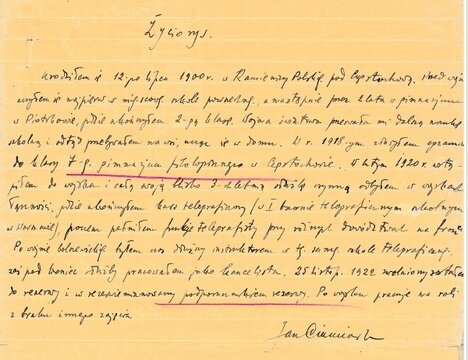 Życiorys.
Urodziłem się 12-go lipca 1900 r. w Kamienicy Polskiej pod Częstochową. Przed wojną
uczyłem się najpierw w miejscowej szkole powszechnej, a następnie przez 2 lata w gimnazjum
w Piotrkowie, gdzie ukończyłem 2-gą klasę. Wojna światowa przerwała mi dalszą naukę
szkolną i odtąd przebywałem nauk, ucząc się w domu. W r. 1918-ym zdałem egzamin
do klasy 7-ej gimnazjum filologicznego w Częstochowie. W lutym 1920 r. wstą-
piłem do wojska i całą swoją blisko 3-letnią służbę czynną odbyłem w wojskach
łączności, gdzie ukończyłem kurs telegraficzny (w I baonie telegraficznym szkolnym
w Warszawie), potem pełniłem funkcję telegrafisty przy różnych dowództwach na froncie.
Po wojnie bolszewickiej byłem czas dłuższy instruktorem w tej samej szkole telegraficznej,
zaś pod koniec służby pracowałem jako kancelista. 25 listop. 1922 zwolniony zostałem
do rezerwy i w rezerwie mianowany podporucznikiem rezerwy. Po wojsku pracuję na roli
z braku innego zajęcia.
Jan